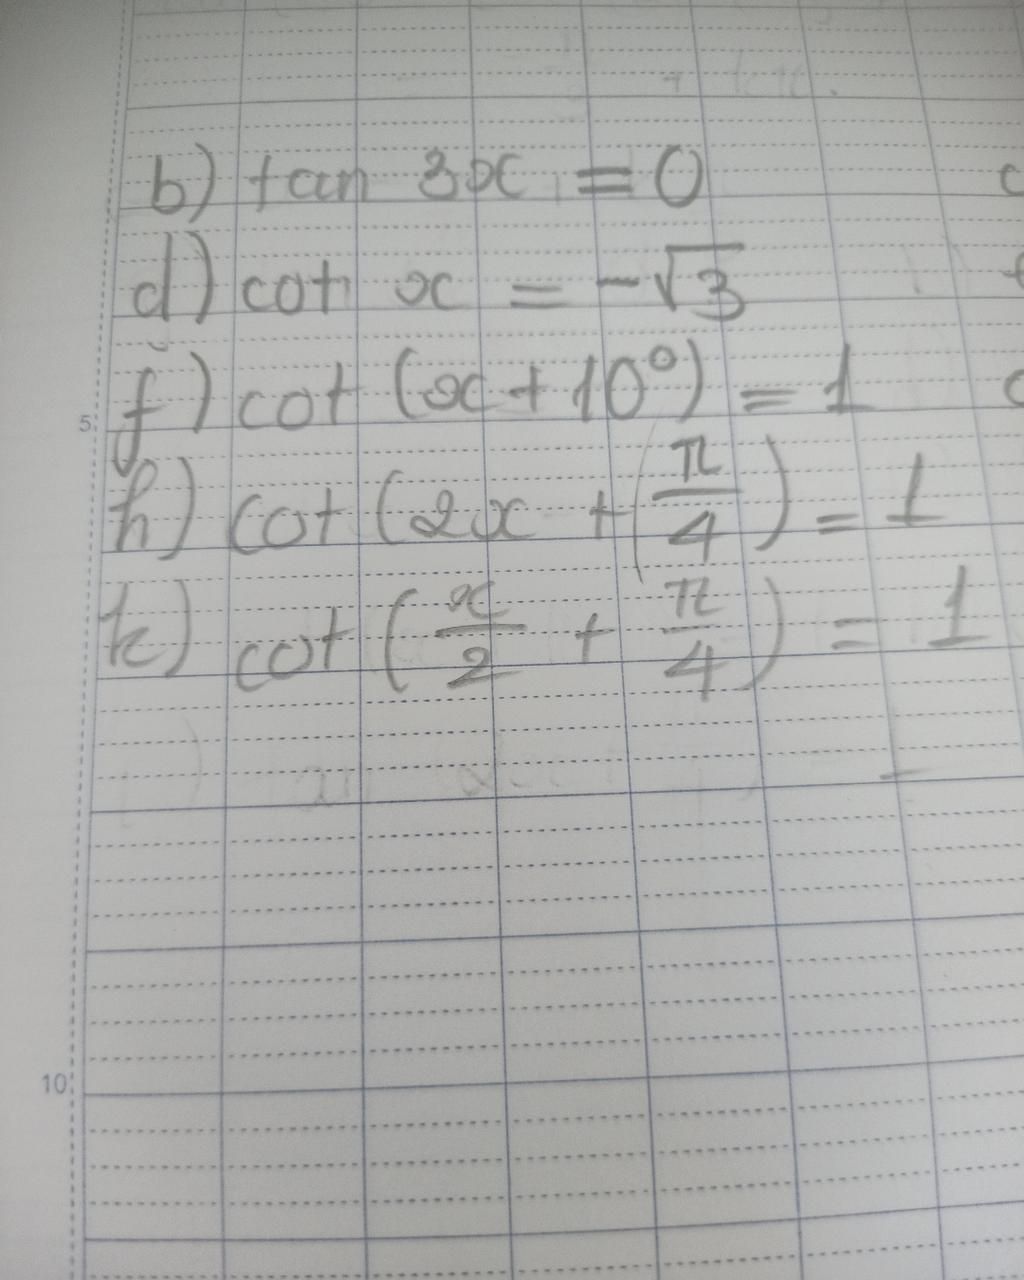 b) tan 3x = 0
d) cot x = -√3
f) cot (x + 10°) = 1
5
h) cot (2x + (π/4) = 1
k) cot (x/2 + π/4) = 1
10